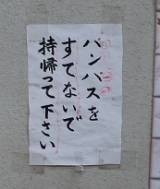 パンパスを
すてないで
持帰って下さい